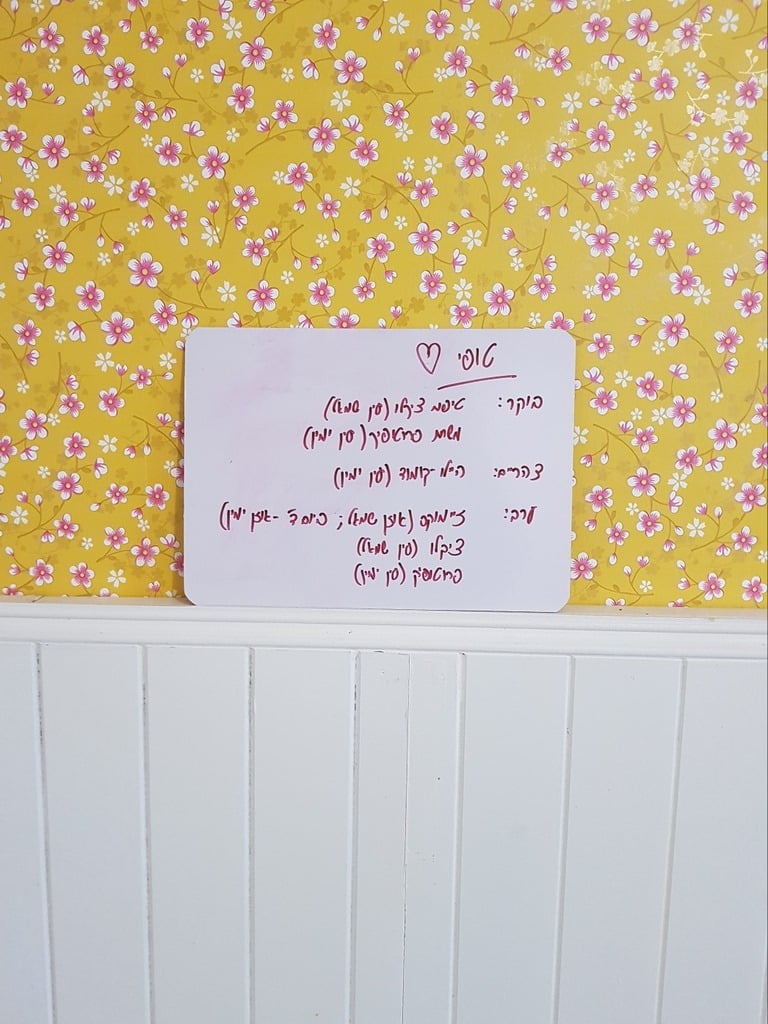 טופי ♡
בוקר: טיפות צילו (עין שמאל)
משחת פרוטופיק (עין ימין)
צהריים: היילו-קומוד (עין ימין)
ערב: זיימוקס (אוזן שמאל; ביום ד' - אוזן ימין)
צילו (עין שמאל)
פרוטופיק (עין ימין)